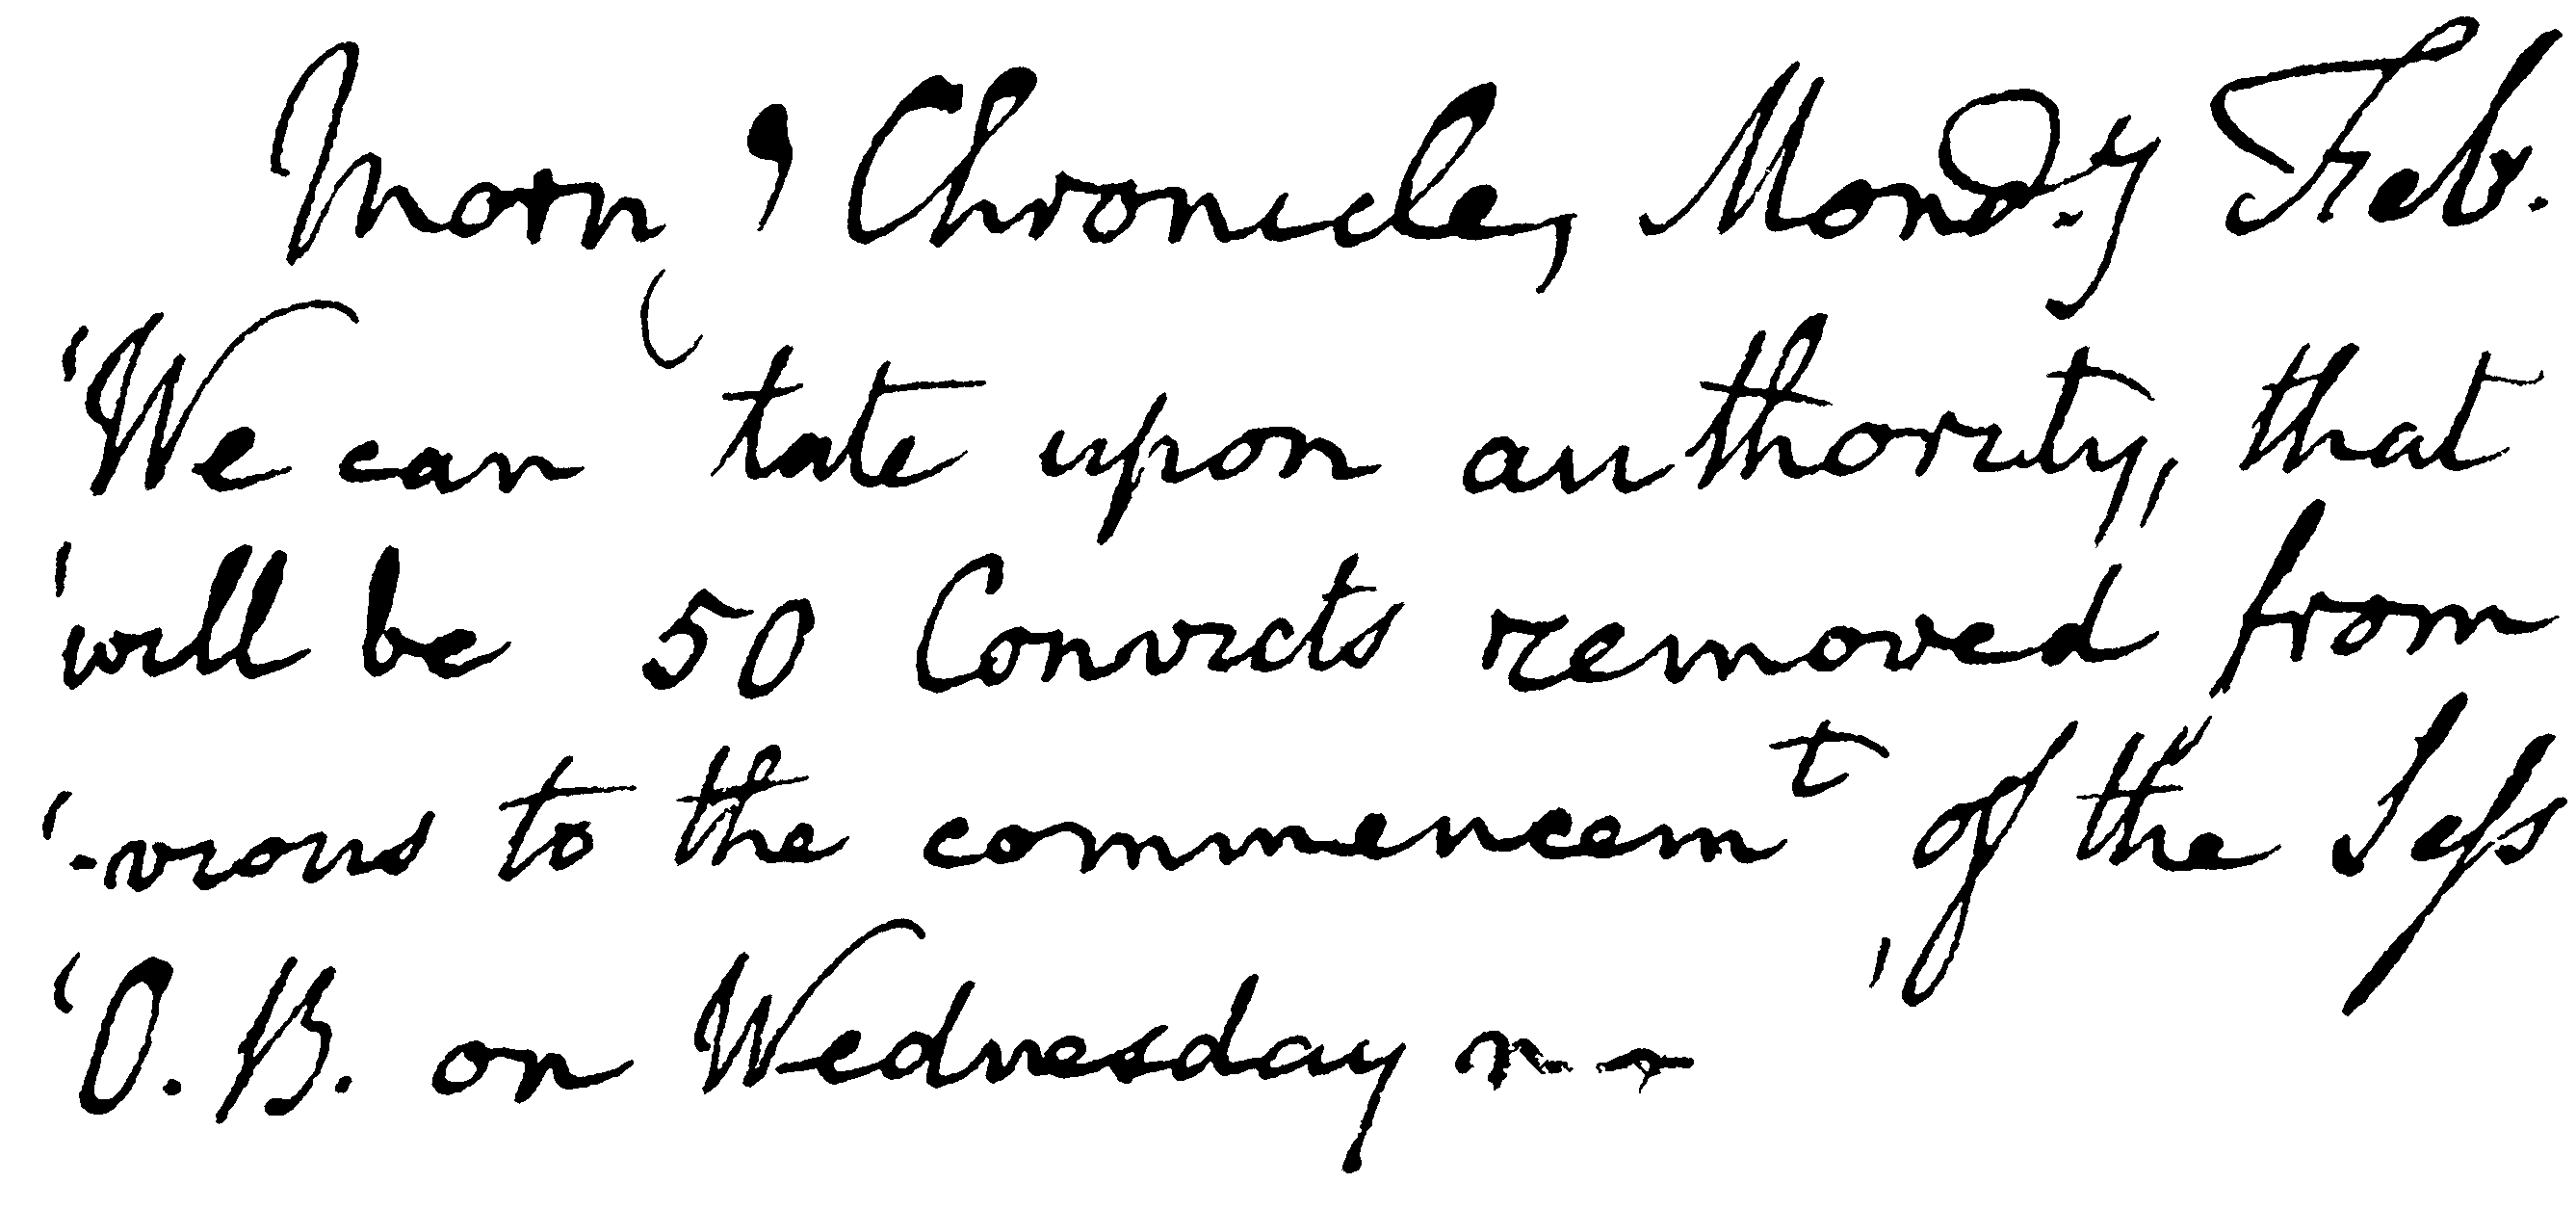 Morng Chronicle, Mond.y Febr.
'We can tate upon authority, that
'will be 50 Convicts removed from
'-vious to the commencemt of the Sess
'O. B. on Wednesday